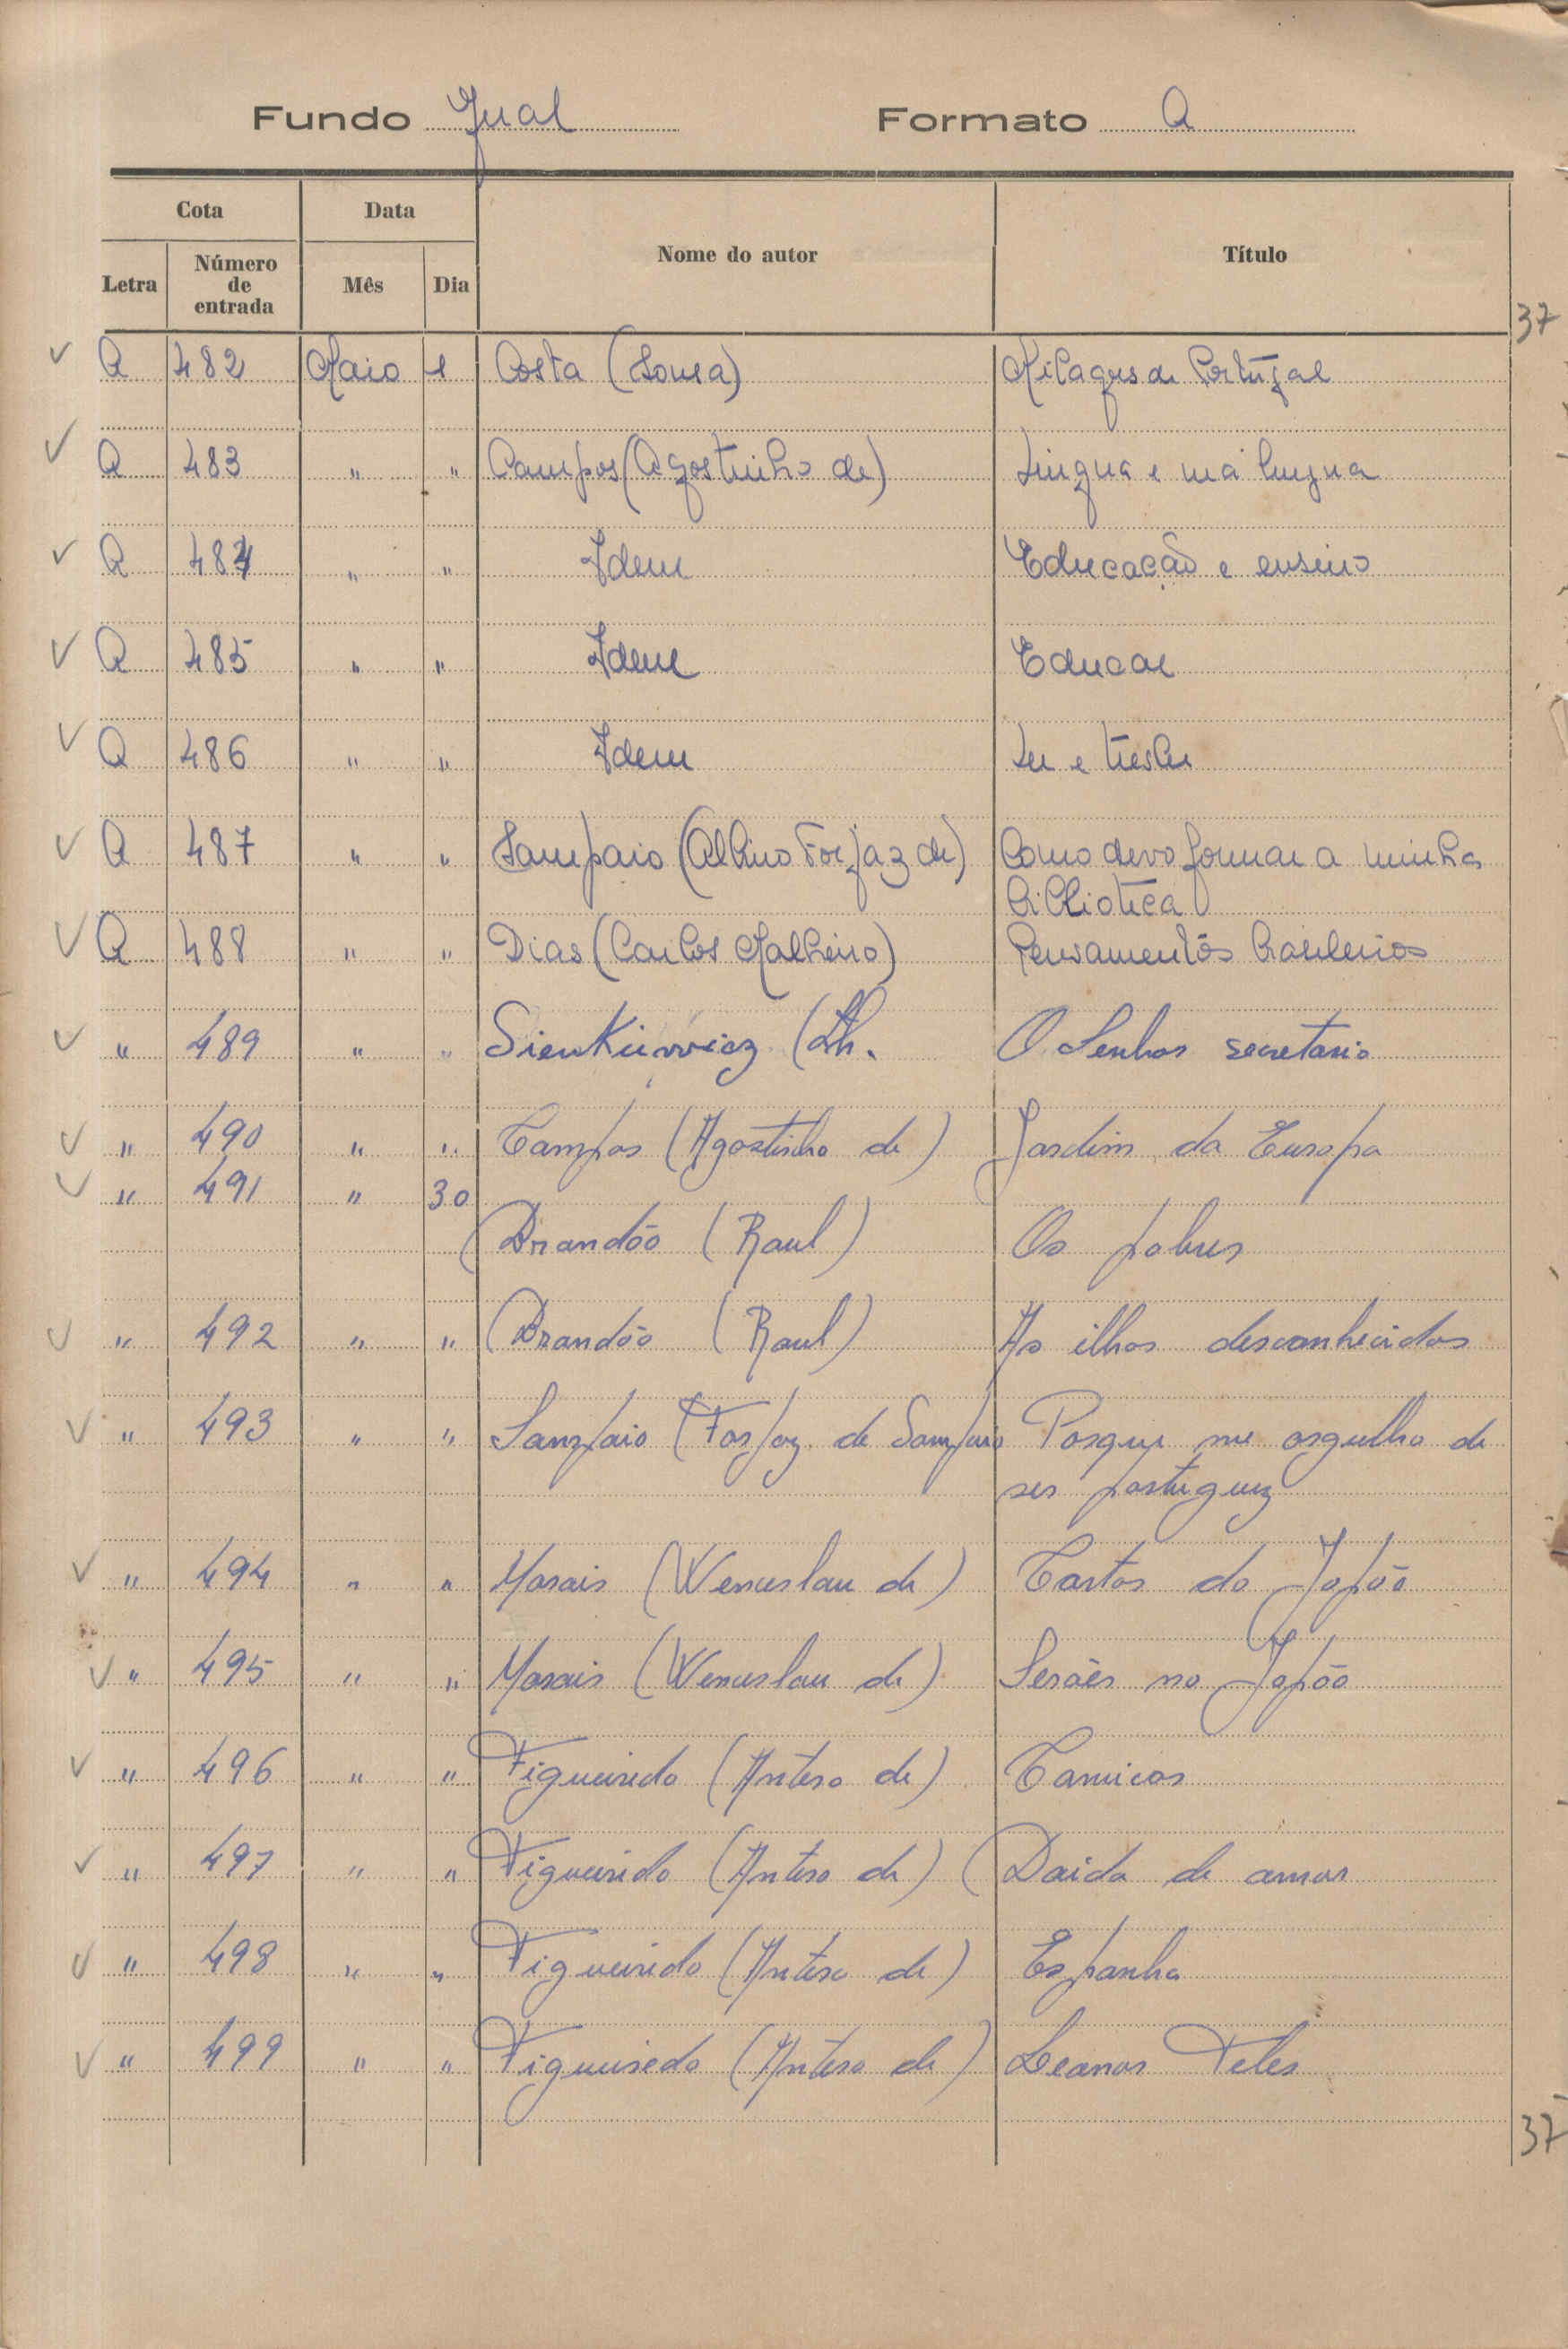 Fundo Gual Formato A
Cota Data Nome do autor Título
Letra Número de entrada Mês Dia
37
A 482 Maio 1 Costa (Sousa) Milagres de Portugal
A 483 " " Campos (Agostinho de) Lingua e má lingua
A 484 " " Idem Educação e ensino
A 485 " " Idem Educar
A 486 " " Idem Ler e tresler
A 487 " " Sampaio (Albino Forjaz de) Como devo formar a minha
biblioteca
A 488 " " Dias (Carlos Malheiro) Pensamentos brasileiros
" 489 " " Sienkiewicz (H. O Senhor secretario
" 490 " " Campos (Agostinho de) Jardim da Europa
" 491 " 30
Brandão (Raul) Os pobres
" 492 " " Brandão (Raul) As ilhas desconhecidas
" 493 " " Sampaio (Forjaz de Sampaio Porque me orgulho de
ser portuguez
" 494 " " Morais (Wenceslau de) Cartas do Japão
" 495 " " Morais (Wenceslau de) Serões no Japão
" 496 " " Figueiredo (Antero de) Comicos
" 497 " " Figueiredo (Antero de) Doida de amor
" 498 " " Figueiredo (Antero de) Espanha
" 499 " " Figueiredo (Antero de) Leonor Teles
37